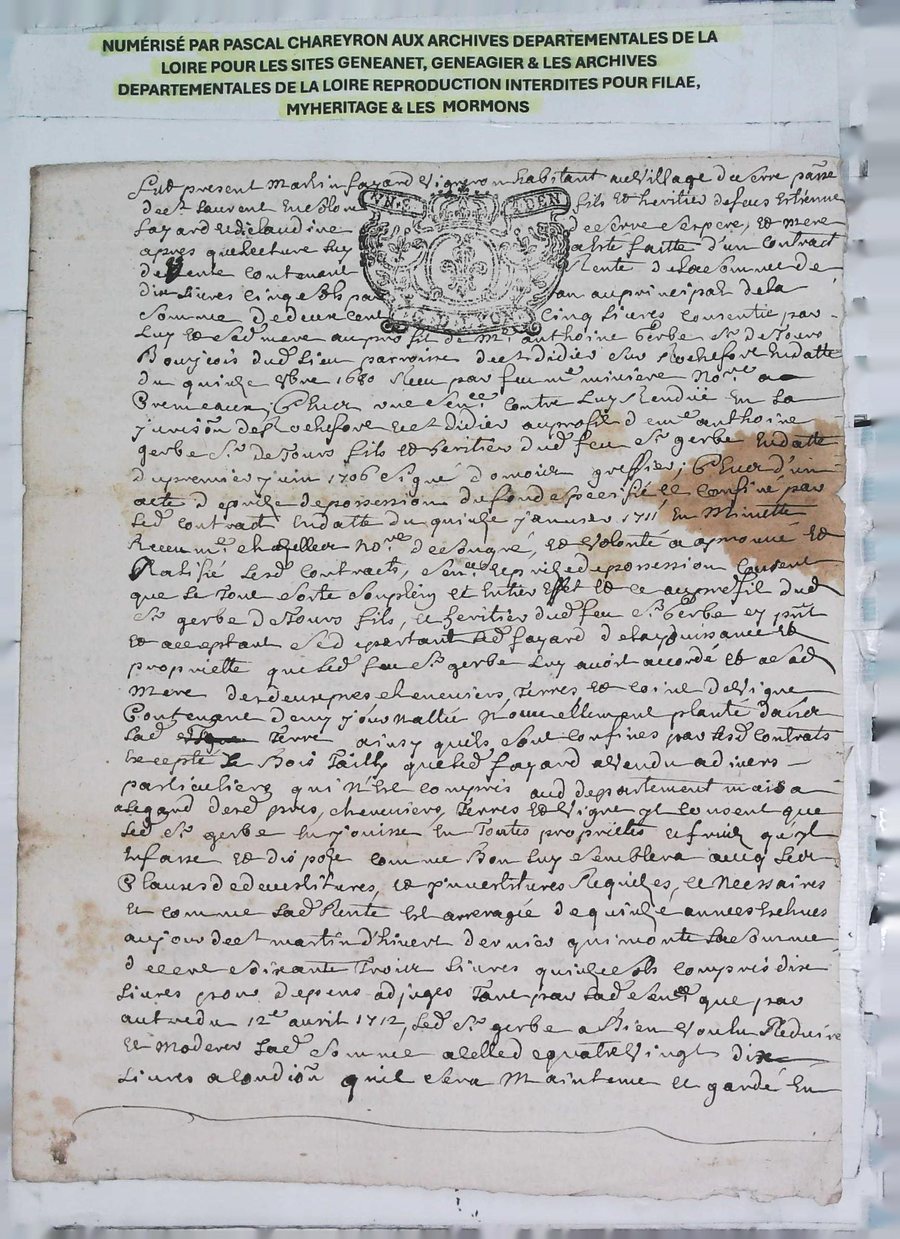 NUMÉRISÉ PAR PASCAL CHAREYRON AUX ARCHIVES DEPARTEMENTALES DE LA
LOIRE POUR LES SITES GENEANET, GENEAGIER & LES ARCHIVES
DEPARTEMENTALES DE LA LOIRE REPRODUCTION INTERDITES POUR FILAE,
MYHERITAGE & LES MORMONS
Fut present Martin fayard Vigneron habitant au Village du Serre
de st Laurent fils et heritier de feus Estienne
fayard et de claudine de Serre ses pere, et mere
apres que lecture luy a este faitte d'un Contract
de Vente contenant Rente de la somme de
dix Livres cinq sols par an au principal de la
somme de deux cent cinq Livres consentie par
Luy et sad mere au profit de Me anthoine Gerbe Sr de Tours
Bourjois dud Lieu parroisse de st didier sur Rochefort En datte
du quinze 1680 Receu par feu me miniere Nore a
contre Luy Rendüe En La
de Rochefort et st didier au profit d'e me anthoine
gerbe Sr de Tours fils et heritier dud feu Sr gerbe En datte
du premier juin 1706 signé greffier,
acte de prize de possession du fond specifié et confiné par
Led contract En datte du quinze janvier 1711
Receu me Nore de son gré, et Volonté a aprouvé et
Ratifié Lesd contracts, et prize de possession consent
que Le Tout sorte son plein et Entier Effet et ce au profit dud
Sr gerbe de Tours fils, et heritier dud feu Sr Gerbe
et acceptant led fayard de la puissance et
propriette que Led feu Sr gerbe Luy avoit accordé et a sad
Mere des deux pres cheneviers, Terres et coin de Vigne
Contenant demy journallée Nouvellement planté dans
Lad Terre ainsy quils sont confines par Lesd contrats
Excepté Le Bois Taillis que Led fayard a Vendu a divers
particuliers qui N'est compris aud departement mais a
Legard desd pres, cheneviers, Terres et Vigne yl consent que
Led Sr gerbe En jouisse En Toutes proprietes et fruits qu'yl
En fasse et dispoze comme Bon Luy semblera
Clauses de devestitures, et Requizes, et Necessaires
et comme Lad Rente Est arreragée de quinze annees Echues
au jour de st martin d'hiver dernier qui monte La somme
soixante Trois Livres quinze sols compris dix
Livres pour depens adjuges Tant par Lad que par
autre du 12e avril 1712, Led Sr gerbe a Bien Voulu Reduire
et Moderer Lad somme a celle de quatre Vingt dix
Livres a condion quil sera Maintenu et gardé En